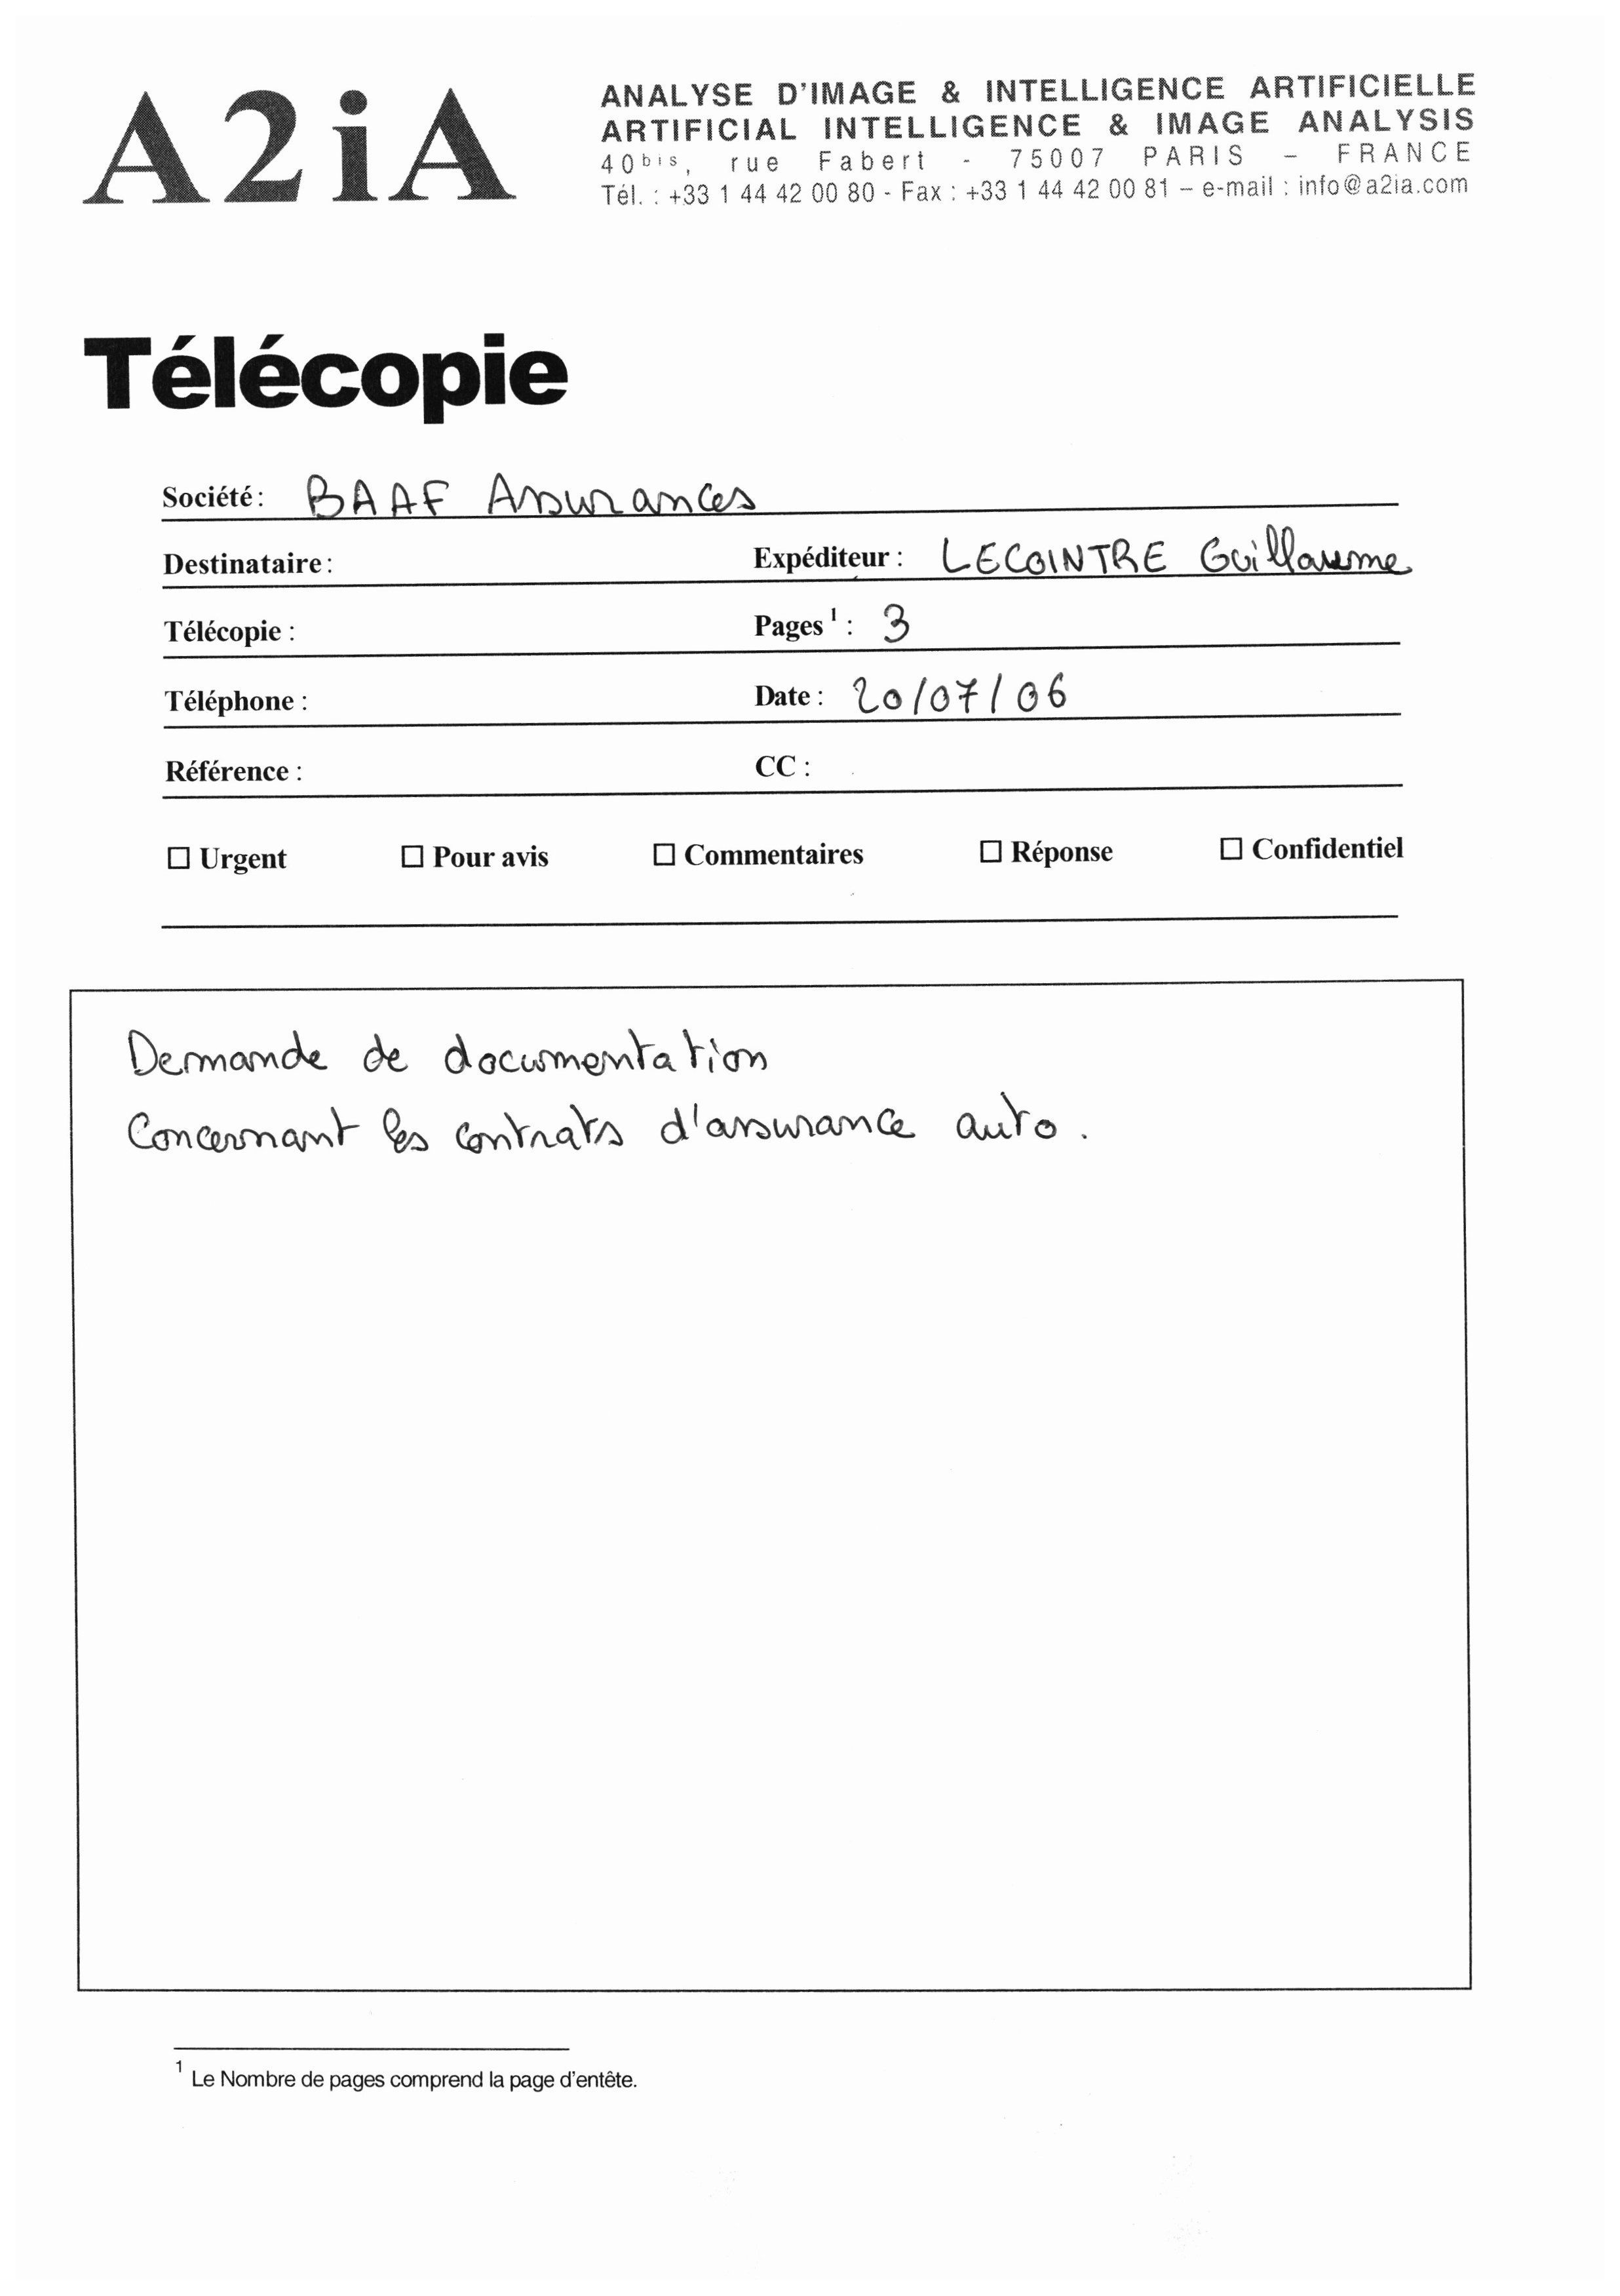 A2iA
ANALYSE D'IMAGE & INTELLIGENCE ARTIFICIELLE
ARTIFICIAL INTELLIGENCE & IMAGE ANALYSIS
40bis, rue Fabert - 75007 PARIS – FRANCE
Tél. : +33 1 44 42 00 80 - Fax : +33 1 44 42 00 81 – e-mail : info@a2ia.com
Télécopie
Société : BAAF Assurances
Destinataire : Expéditeur : LECOINTRE Guillaume
Télécopie : Pages 1 : 3
Téléphone : Date : 20/07/06
Référence : CC :
☐ Urgent ☐ Pour avis ☐ Commentaires ☐ Réponse ☐ Confidentiel
Demande de documentation
Concernant les contrats d'assurance auto.
1 Le Nombre de pages comprend la page d'entête.